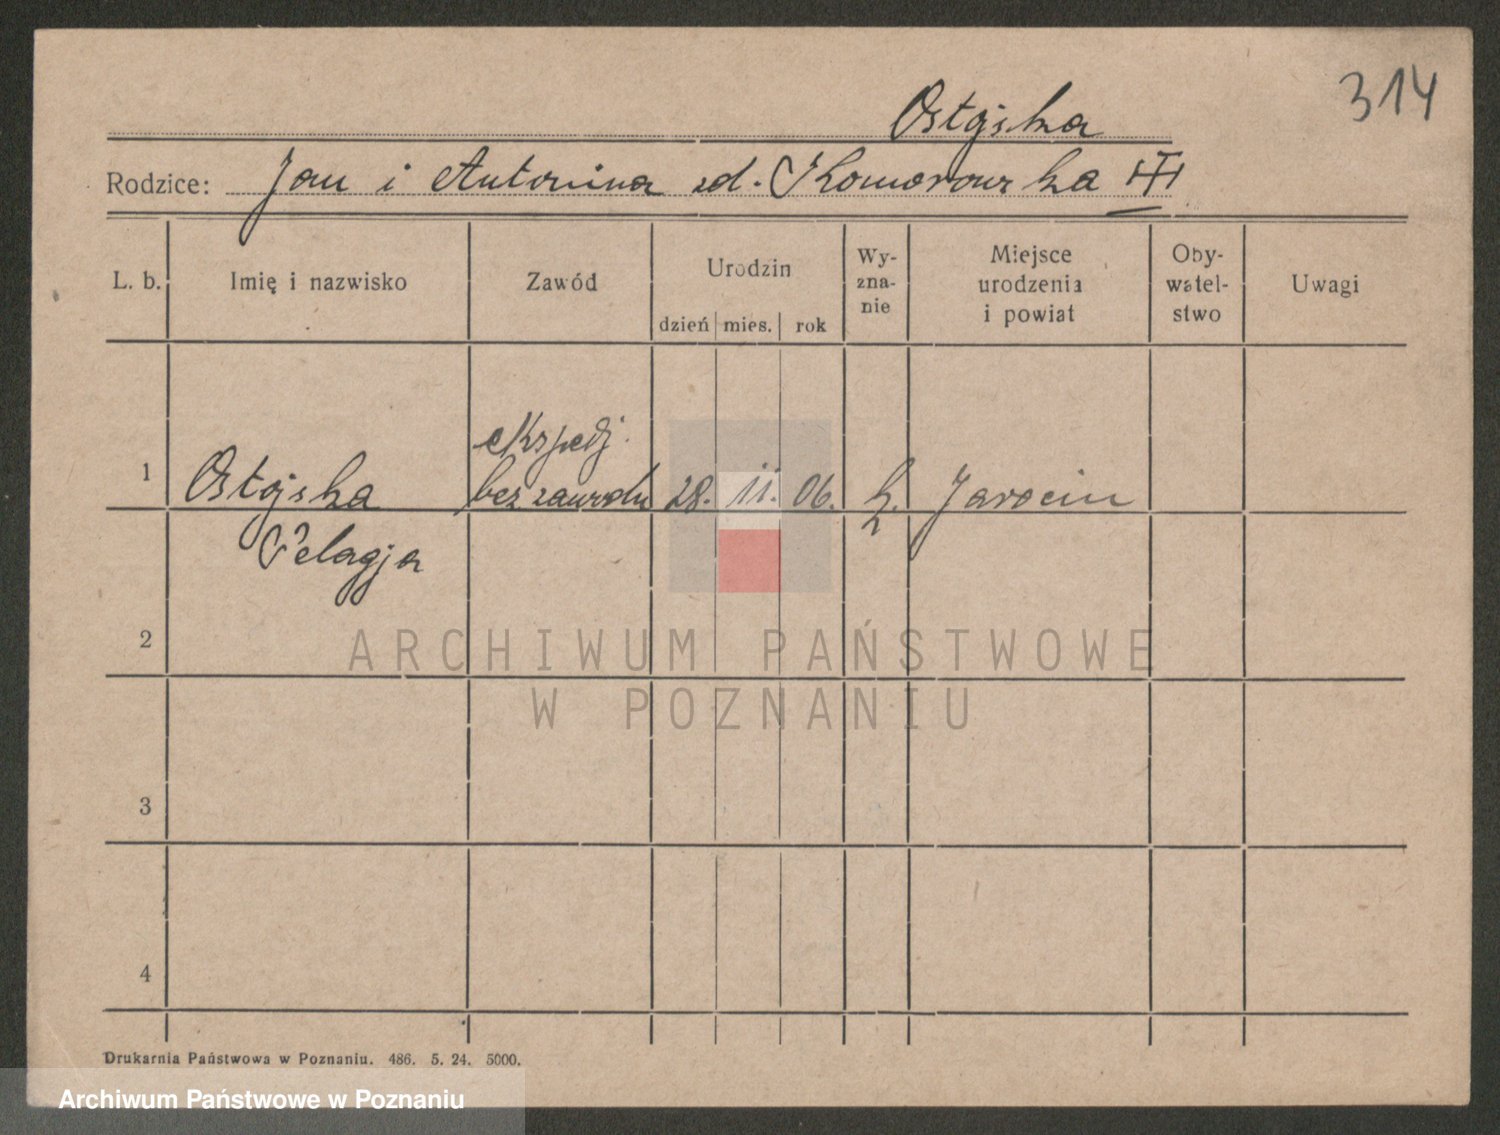 314
Ostojska
Rodzice: Jan i Antonina zd. Komorowska
L. b.
Imię i nazwisko
Zawód
Urodzin
dzień mies. rok
Wy-
zna-
nie
Miejsce
urodzenia
i powiat
Oby-
watel-
stwo
Uwagi
ekspedj.
1 Ostojska bez zawodu 28. 11. 06. Jarocin
Pelagja
2
3
4
ARCHIWUM PAŃSTWOWE
W POZNANIU
Drukarnia Państwowa w Poznaniu. 486. 5. 24. 5000.
Archiwum Państwowe w Poznaniu